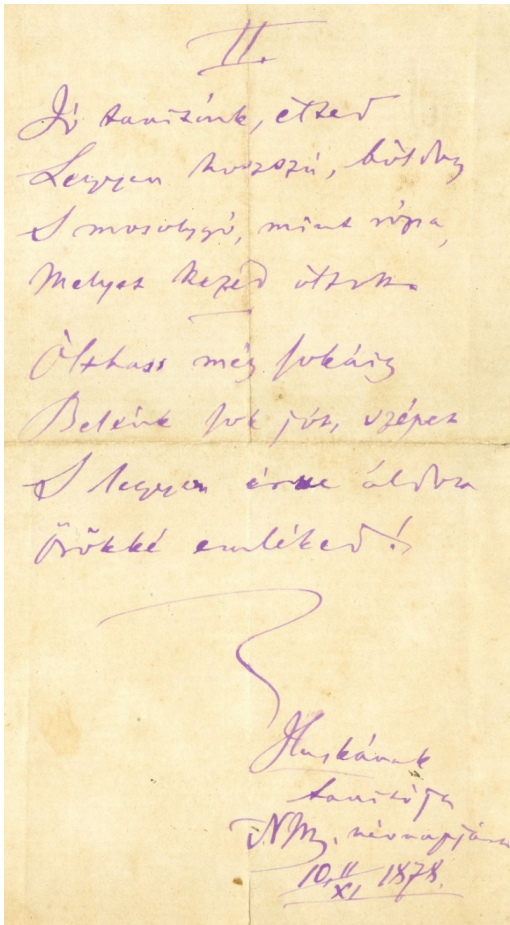 II.
Jó tanítónk, élted
Legyen hosszú, boldog
S mosolygó, mint rózsa,
Melyet kezéd
Olthass még sokáig
Belénk sok jót, szépet
S legyen érte áldva
Örökké emléked!
Iluskának
tanítója
N.M. névnapjára
10/11 XI 1878.